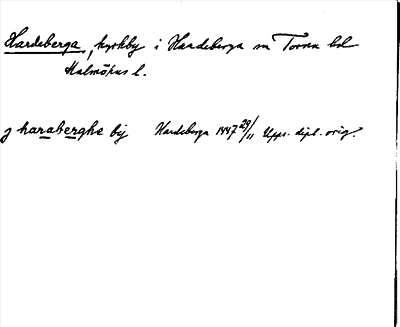 Hardeberga, kyrkby i Hardeberga sn Torna hd
Malmöhus l.
j haraberghe by Hardeberga 1447 29/11 Upps. dipl. orig.